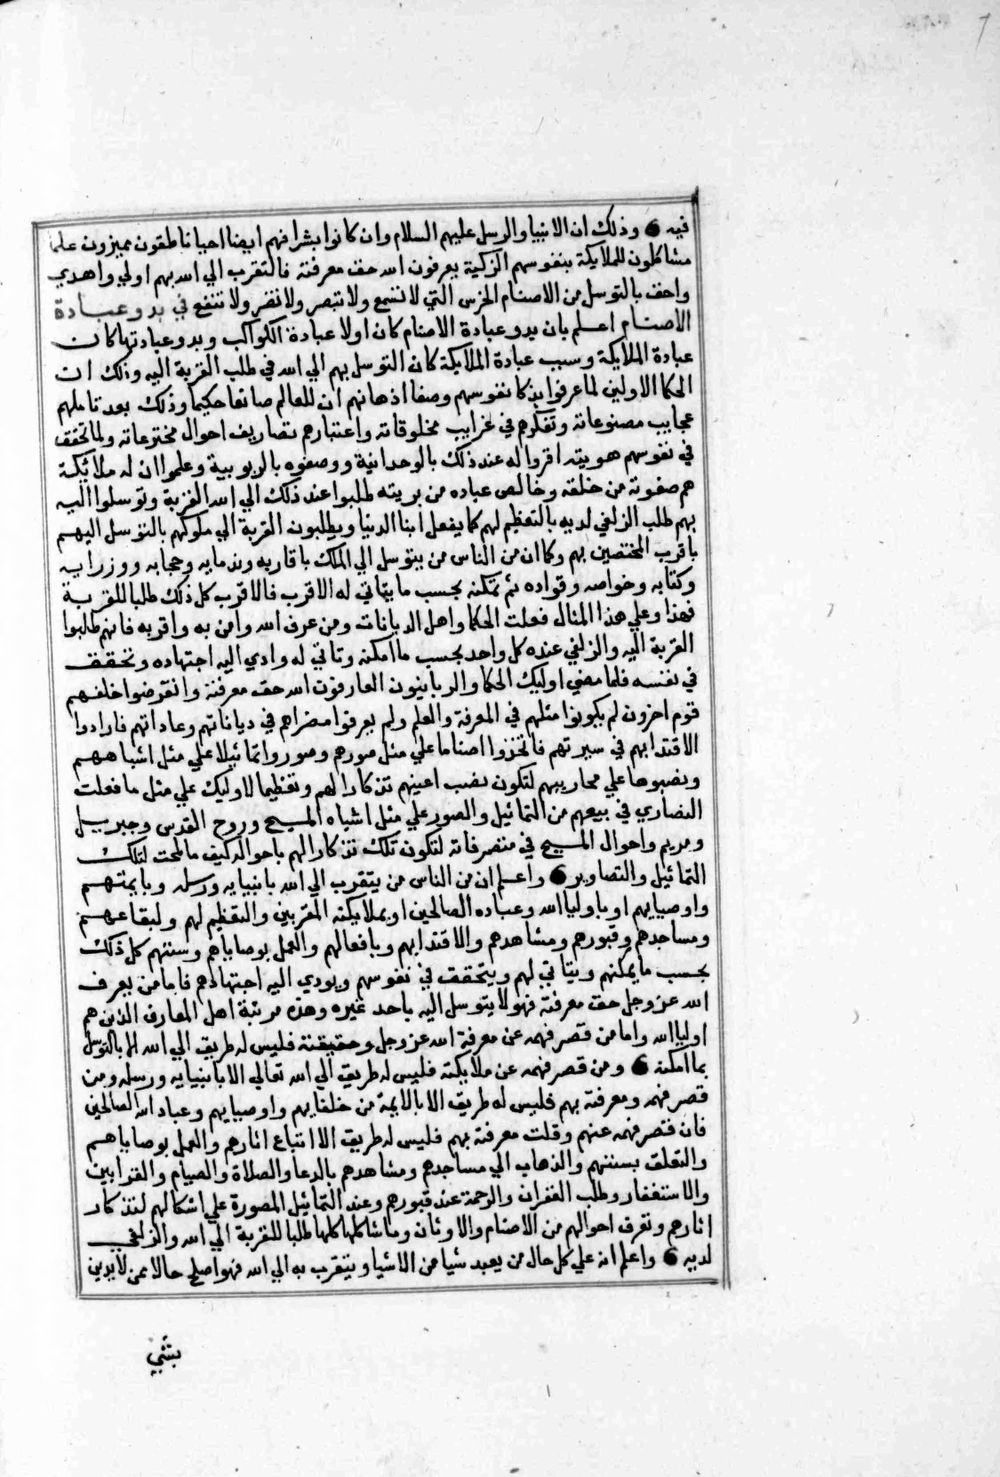 فيه ٥ وذلك ان الانبيا والرسل عليهم السلام وان كانوا بشرا فهم ايضا احيا ناطقون مميزون علما
مشاكلون للملايكة بنفوسهم الزكية يعرفون الله حق معرفته فالتقرب الي الله بهم اولي واهدي
واحق بالتوسل من الاصنام الخرس التي لا تسمع ولا تبصر ولا تضر ولا تنفع في بدو عبادة
الاصنام اعلم بان بدو عبادة الاصنام كان اولا عبادة الكواكب وبدو عبادتها كان
عبادة الملايكة وسبب عبادة الملايكة كان التوسل بهم الي الله في طلب القربة اليه وذلك ان
الحكما الاولين لما عرفوا بذكا نفوسهم وصفا اذهانهم ان للعالم صانعا حكيما وذلك بعد تاملهم
عجايب مصنوعاته وتفكرهم في غرايب مخلوقاته واعتبارهم تصاريف احوال مخترعاته ولما تحقق
في نفوسهم هويته اقروا له عند ذلك بالوحدانية ووصفوه بالربوبية وعلموا ان له ملائكة
هم صفوته من خلقه وخالص عباده من بريته طلبوا عند ذلك الي الله القربة وتوسلوا اليه
بهم طلب الزلفي لديه بالتعظيم لهم كما يفعل ابنا الدنيا ويطلبون القربة الي ملوكهم بالتوسل اليهم
باقرب المختصين بهم وكما ان من الناس من يتوسل الي الملك باقاربه وندمايه وحجابه ووزرايه
وكتابه وخواصه وقواده ثم تمكنه بحسب ما يتاتي له الاقرب فالاقرب كل ذلك طلبا للقربة
فهذا وعلي هذا المثال فعلت الحكما واهل الديانات ومن عرف الله وامن به واقر به فانهم طلبوا
القربة اليه والزلفي عنده كل واحد بحسب ما امكنه وتاتي له وادي اليه اجتهاده وتحقق
في نفسه فلما مضي اوليك الحكما والربانيون العارفون الله حق معرفته وانقرضوا خلفهم
قوم اخرون لم يكونوا مثلهم في المعرفة والعلم ولم يعرفوا مغزاهم في دياناتهم وعاداتهم فارادوا
الاقتدا بهم في سيرتهم فاتخذوا اصناما علي مثل صورهم وصوروا تماثيلا علي مثل اشباههم
ونصبوها علي محاريبهم لتكون نصب اعينهم تذكارا لهم وتعظيما لاوليك علي مثل ما فعلت
النصاري في بيعهم من التماثيل والصور علي مثل اشباه المسيح وروح القدس وجبريل
ومريم واحوال المسيح في متصرفاته لتكون تلك تذكارا لهم باحواله كيف ما لمحت لتلك
التماثيل والتصاوير ٥ واعلم ان من الناس من يتقرب الي الله بانبيايه ورسله وبايمتهم
واوصيايهم او باوليا الله وعباده الصالحين او بملايكته المقربين والتعظيم لهم ولبقاعهم
ومساجدهم وقبورهم ومشاهدهم والاقتدا بهم وبافعالهم والعمل بوصاياهم وسننهم كل ذلك
بحسب ما يمكنهم ويتاتي لهم ويتحقق في نفوسهم ويودي اليه اجتهادهم فاما من يعرف
الله عز وجل حق معرفته فهو لا يتوسل اليه باحد غيره وهذه مرتبة اهل المعارف الذين هم
اوليا الله واما من قصر فهمه عن معرفة الله عز وجل وحقيقته فليس له طريق الي الله الا بالتوسل
بما امكنه ٥ ومن قصر فهمه عن ملايكته فليس له طريق الي الله تعالي الا بانبيايه ورسله ومن
قصر فهمه ومعرفته بهم فليس له طريق الا بالايمة من خلفايهم واوصيايهم وعباد الله الصالحين
فان قصر فهمه عنهم وقلت معرفته بهم فليس له طريق الا اتباع اثارهم والعمل بوصاياهم
والتعلق بسننهم والذهاب الي مساجدهم ومشاهدهم بالدعا والصلاة والصيام والقرابين
والاستغفار وطلب الغفران والرحمة عند قبورهم وعند التماثيل المصورة علي اشكالهم لتذكار
اثارهم وتعرف احوالهم من الاصنام والاوثان وما شاكلها كلها طلبا للقربة الي الله والزلفي
لديه ٥ واعلم انه علي كل حال من يعبد شيا من الاشيا ويتقرب به الي الله فهو اصلح حالا ممن لا يدين
بشي